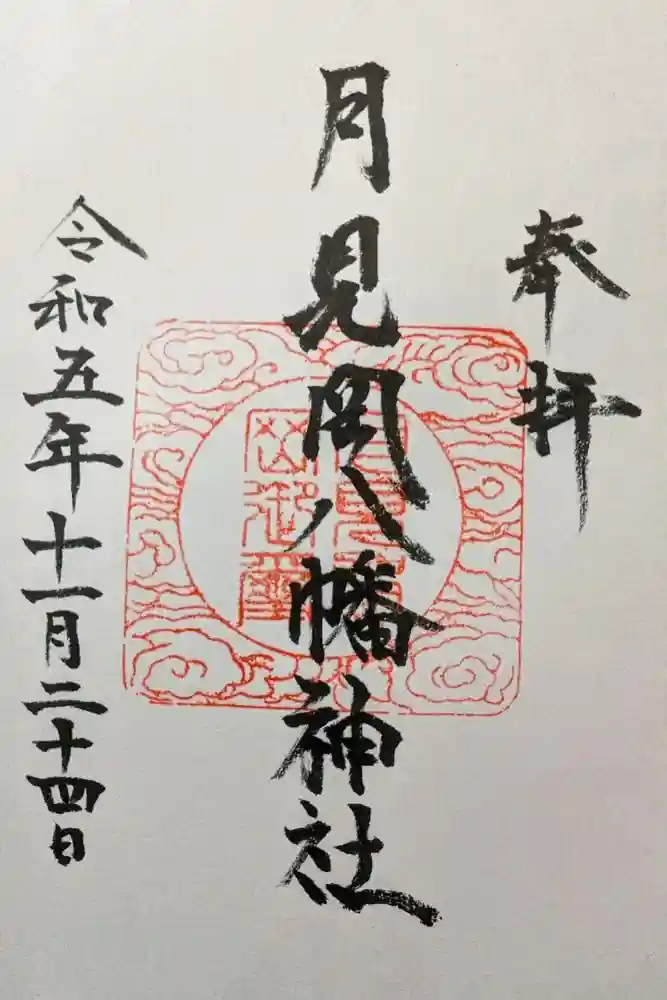 奉拝
月見岡八幡神社
令和五年十一月二十四日